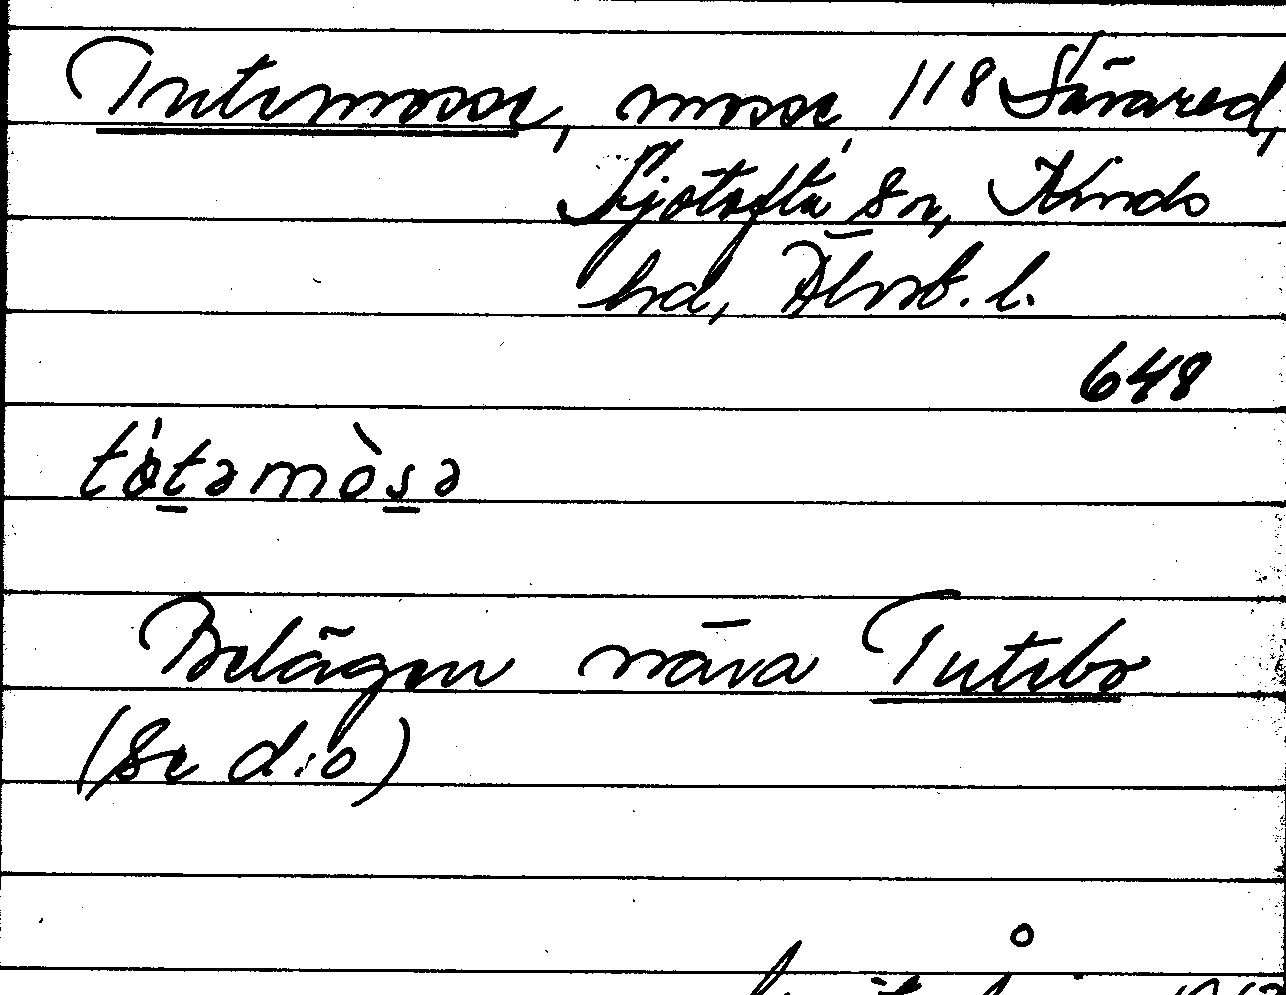 Tutemosse, mosse, 118 Särared,
Ljøtofta sn, Kinds
hd, Älvsb. l.
648
tòtəmòsə
Belägen nära Tutebo
(Se d:o)